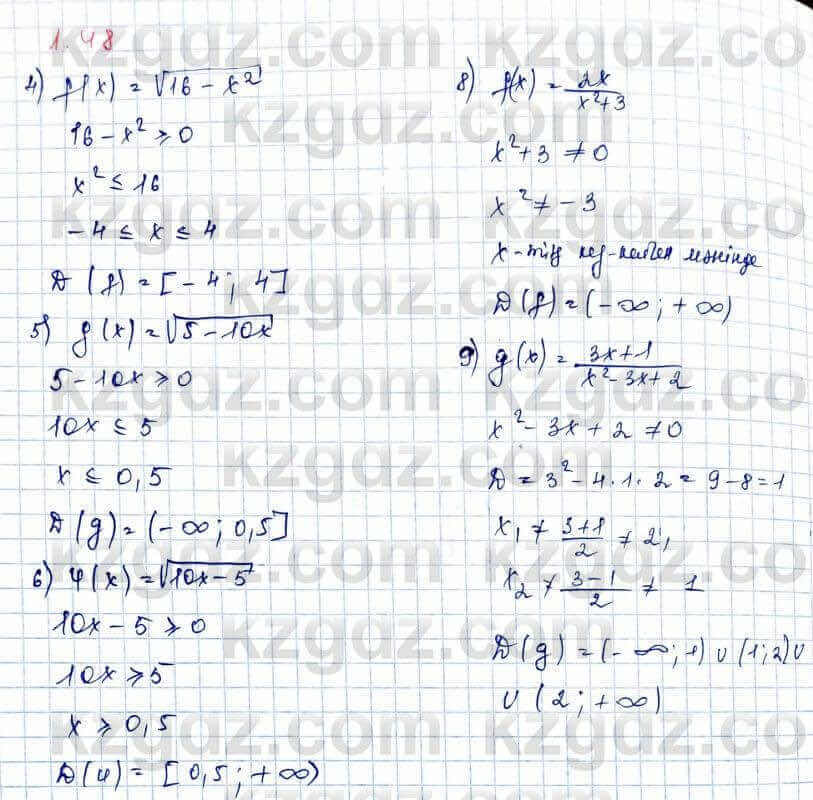 1.48
4) f(x) = √16 - x²
16 - x² ≥ 0
x² ≤ 16
-4 ≤ x ≤ 4
D(f) = [-4; 4]
5) g(x) = √5 - 10x
5 - 10x ≥ 0
10x ≤ 5
x ≤ 0,5
D(g) = (-∞; 0,5]
6) φ(x) = √10x - 5
10x - 5 ≥ 0
10x ≥ 5
x ≥ 0,5
D(φ) = [0,5; +∞)
8) f(x) = 2x / x² + 3
x² + 3 ≠ 0
x² ≠ -3
x-тің кез-келген мәнінде
D(f) = (-∞; +∞)
9) g(x) = 3x + 1 / x² - 3x + 2
x² - 3x + 2 ≠ 0
D = 3² - 4·1·2 = 9 - 8 = 1
x₁ ≠ 3+1 / 2 ≠ 2,
x₂ ≠ 3-1 / 2 ≠ 1
D(g) = (-∞; 1) ∪ (1; 2) ∪
∪ (2; +∞)
kzgdz.com